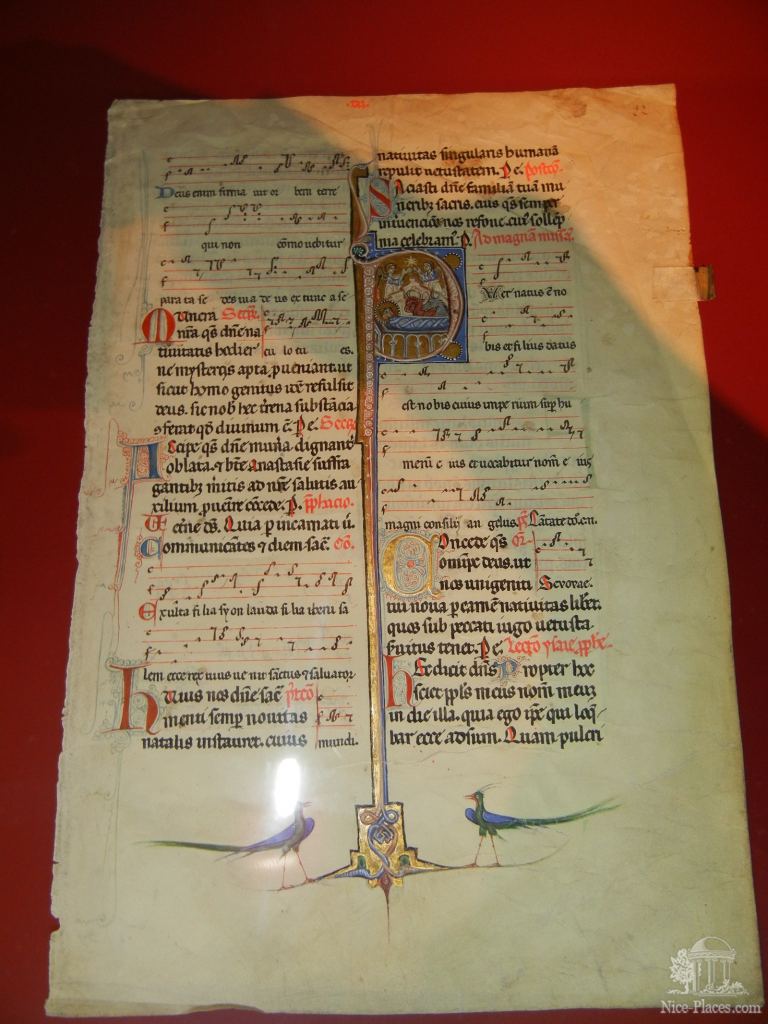 Deus enim firma uit or bem terre
qui non cōmouebitur
parata se des tua de us ex tunc a se
Munera Secr̄.
nr̄a qs dn̄e na
tiuitatis hodier cu lo tu es.
ne mysteriis apta ꝓueniant ut
sicut homo genitus idē refulsit
deus. sic nob hec t̄rena substācia
ɔferat qd̄ diuinum ē. P e. Secr̄
Accipe qs dn̄e mun̄a dignant
oblata. ⁊ bt̄e Anastasie suffra
gantibꝫ m̄itis ad nr̄e salutis au
xilium ꝓuēire ɔcede. P.
Eterne ds̄. Quia p incarnati ū.
Communicātes ⁊ diem sac̄. Cō.
Exulta fi lia syon lau da fi lia iheru sa
lem ecce rex tuus ue nit sāctus ⁊ saluator
Huius nos dn̄e sac̄
menti semp nouitas
natalis instauret. cuius mundi.
natiuitas singularis humanā
repulit uetustatem. P e. postcō.
Saciasti dn̄e familiā tuā mu
neribꝫ sacris. eius qs semper
inteuencione nos refoue. cui9 sollēp
nia celebram9. P. Ad magnā missā.
Puer natus ē no
bis et filius datus
est no bis cuius impe rium suꝑ hu
merū e ius et uocabitur nom̄ e ius
magni consilij an gelus. p̄. Cātate dō. cn.
Concede qs Or̄.
omīpc̄ deus. ut
nos unigeniti Seuouae.
tui noua p carnē natiuitas liberet.
quos sub peccati iugo uetusta
seruitus tenet. P e. Lectio ysaie ꝓphe.
Hec dicit dn̄s Propter hoc
sciet ppl̄s meus nom̄ meū
in die illa. quia ego ip̄e qui loq̄
bar ecce adsum. Quam pulcri
Nice-Places.com